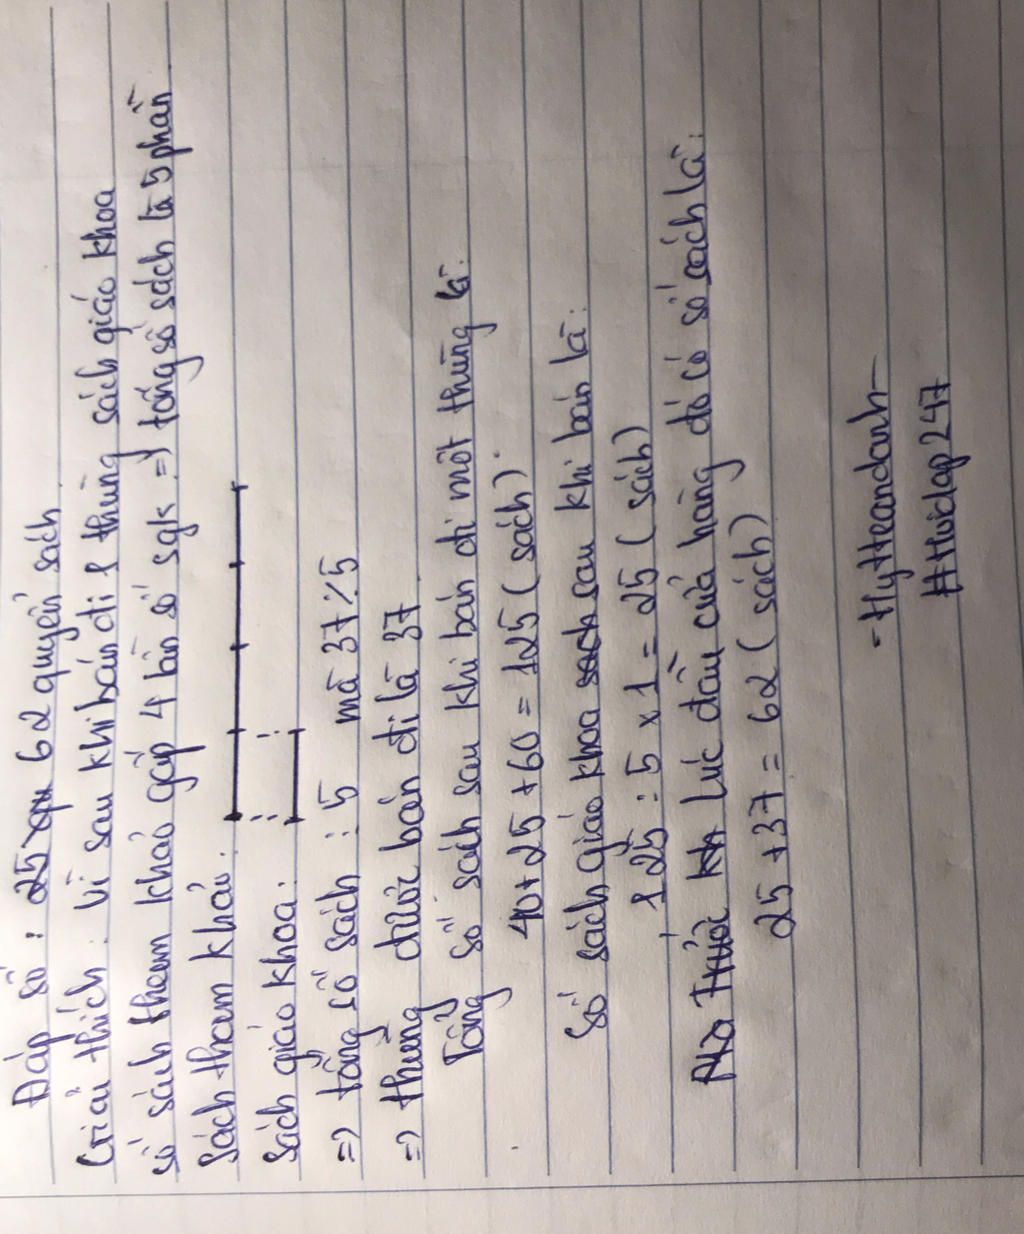 Đáp số : 25 quy 62 quyển sách
Giải thích : Vì sau khi bán đi 1 thùng sách giáo khoa
số sách tham khảo gấp 4 lần số sgk => tổng số sách là 5 phần
Sách tham khảo :
Sách giáo khoa :
=> tổng số sách : 5 mà 37 ٪ 5
=> thùng được bán đi là 37
Tổng số sách sau khi bán đi một thùng là :
40 + 25 + 60 = 125 ( sách )
Số sách giáo khoa sach sau khi bán là :
125 : 5 x 1 = 25 ( sách )
Trước Lúc đầu cửa hàng đó có số sách là :
25 + 37 = 62 ( sách )
- Hytteandanh -
#Hoidap247